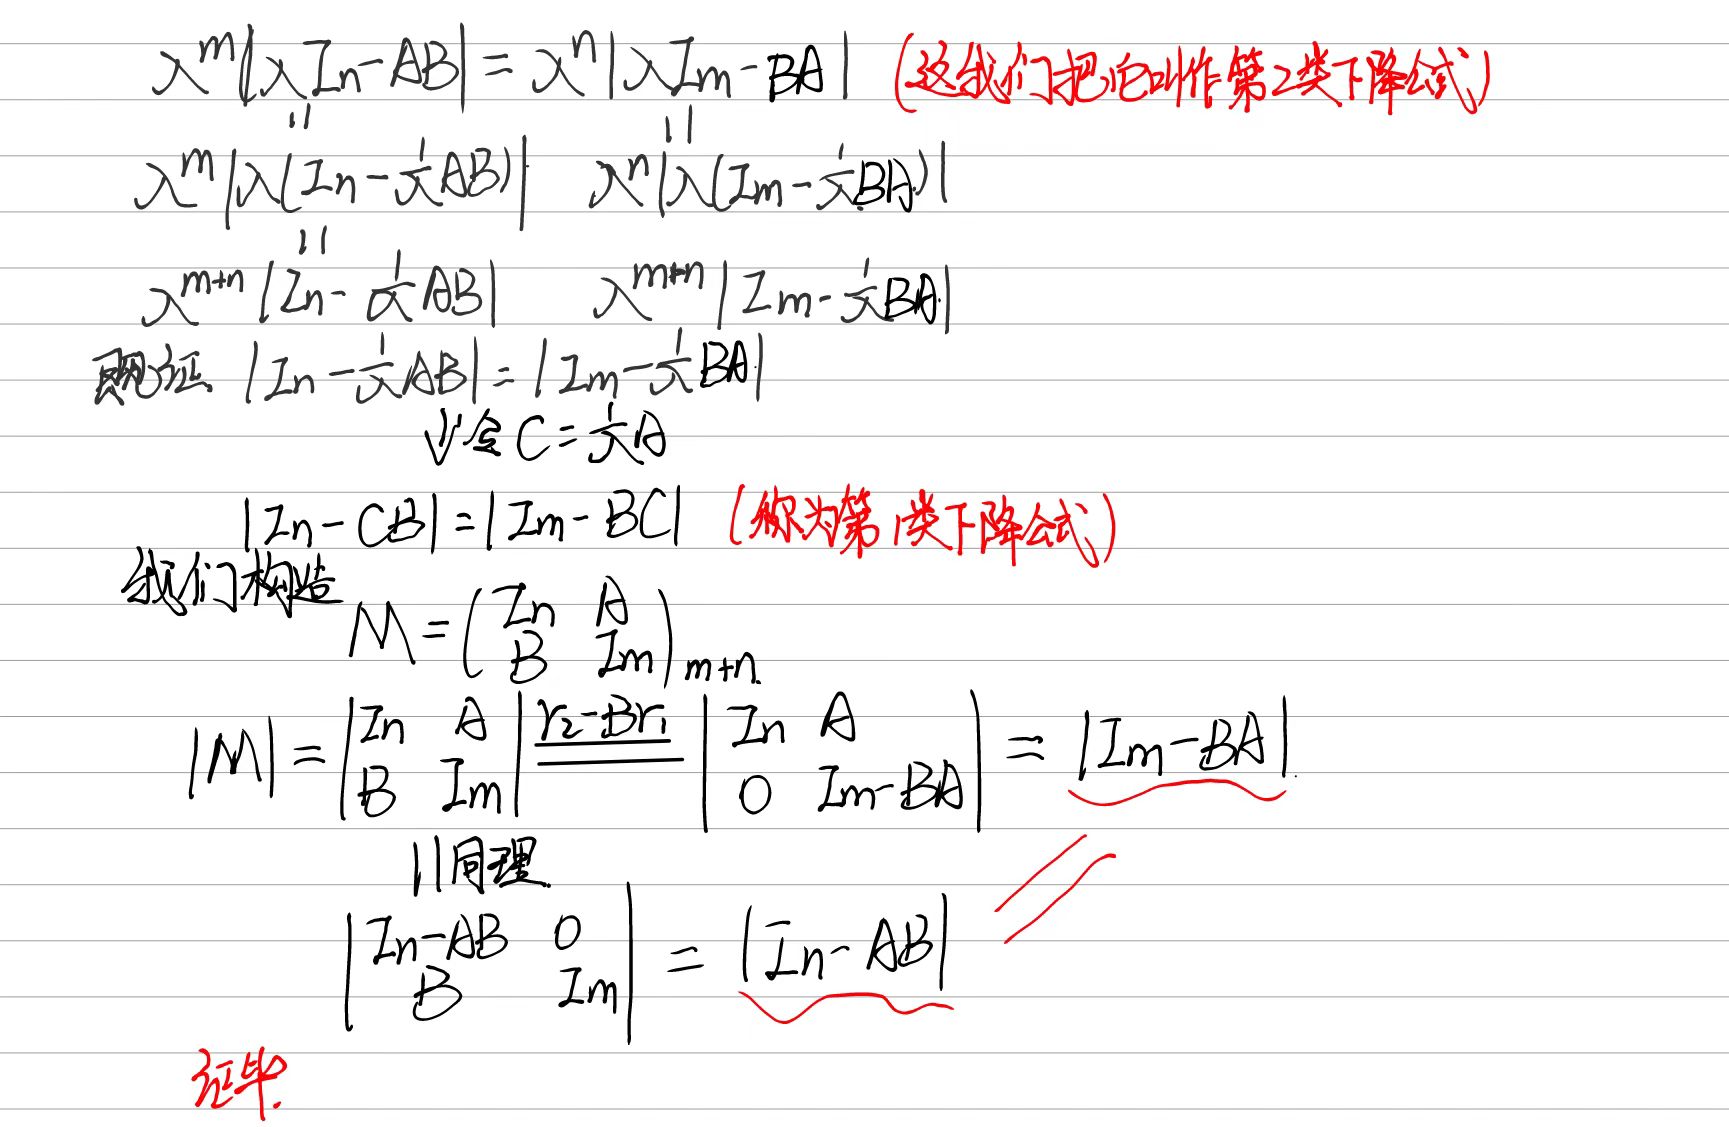 λ^m|λIn-AB| = λ^n|λIm-BA| (这我们把它叫作第2类下降公式)
|| ||
λ^m|λ(In-1/λAB)| λ^n|λ(Im-1/λBA)|
||
λ^{m+n}|In-1/λAB| λ^{m+n}|Im-1/λBA|
现证 |In-1/λAB| = |Im-1/λBA|
⇓令 C=1/λA
|In-CB| = |Im-BC| (称为第1类下降公式)
我们构造
M = (In A; B Im)_{m+n}
|M| = |In A; B Im| r2-Br1 == |In A; 0 Im-BA| = |Im-BA|
|| 同理
|In-AB 0; B Im| = |In-AB|
证毕.